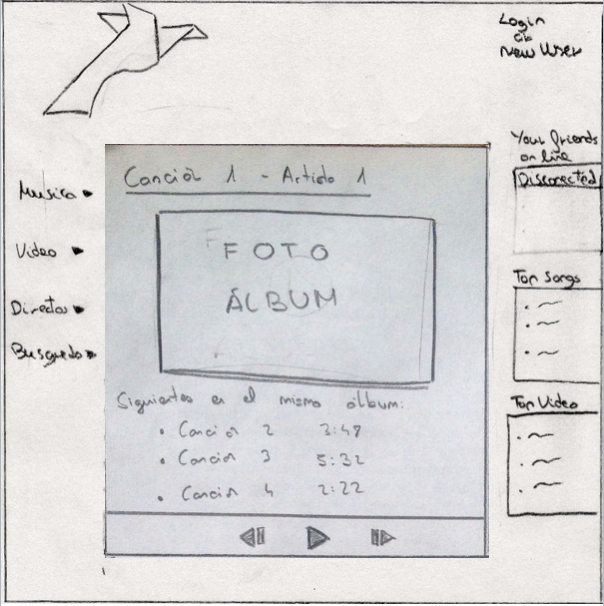 Login
or
New User
Musica
Video
Directos
Busqueda
Canción 1 - Artista 1
FOTO
ÁLBUM
Siguientes en el mismo álbum:
Canción 2 3:47
Canción 3 5:32
Canción 4 2:22
Your friends
on line
Disconected
Top Songs
Top Video